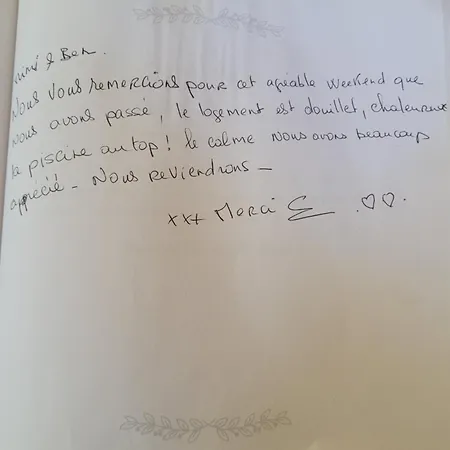 & Ben.
Nous vous remercions pour cet agréable weekend que
nous avons passé, le logement est douillet, chaleureux
la piscine au top! le calme nous avons beaucoup
apprécié - Nous reviendrons -
xxx Merci